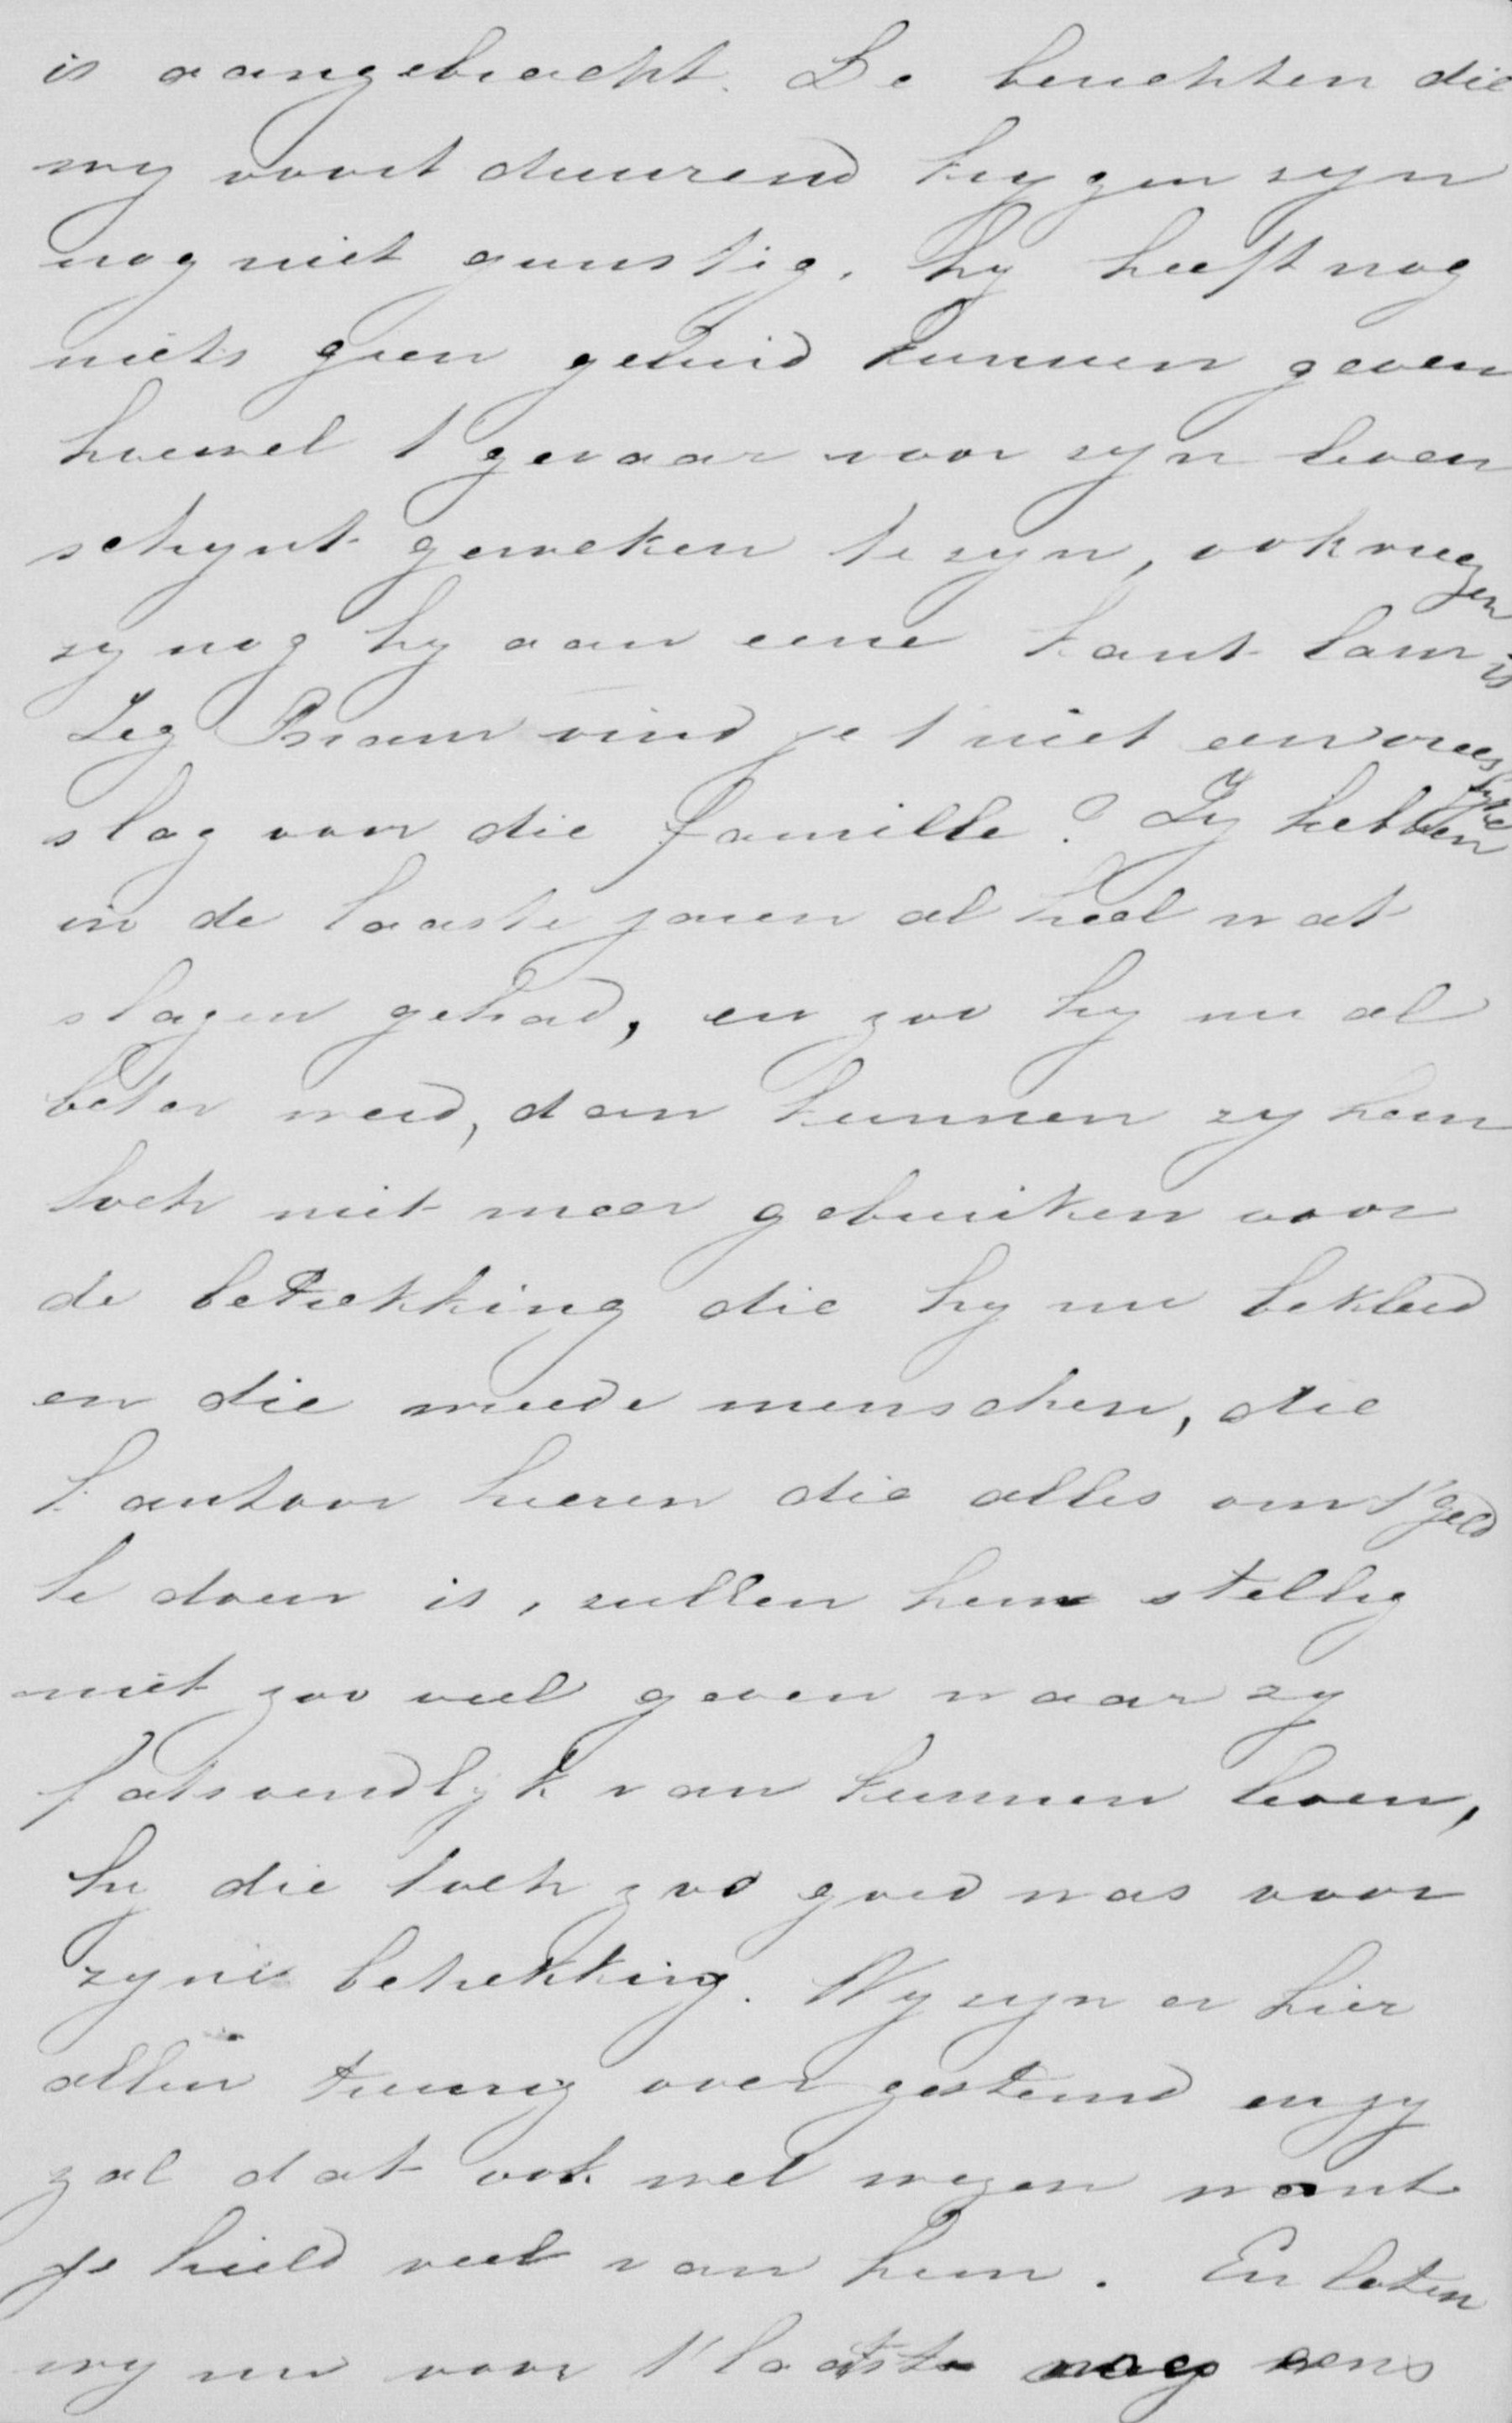 is aangebracht. De berichten die
wy voort durend krygen zyn
nog niet gunstig. hy heeft nog
niets geen geluid kunnen geven
hoewel t gevaar voor zyn leven
schynt geweken te zyn, ook vreezen
zy nog hy aan eene kant lam is
Zeg Bram vind je t niet een vreeslyke
slag voor die familie? Zy hebben
in de laaste jaren al heel wat
slagen gehad, en zoo hy nu al
beter werd, dan kunnen zy hem
toch niet meer gebruiken voor
de betrekking die hy nu bekleed
en die wreede menschen, die
kantoor heeren die alles om t geld
te doen is, zullen hem stellig
niet zoo veel geven waar zy
fatsoendlyk van kunnen leven,
hy die toch zoo goed was voor
zyne betrekking. Wy zyn er hier
allen treurig over gestemd en jy
zal dat ook wel wezen want
je hield veel van hem. En laten
wy nu voor t laatste nog eens